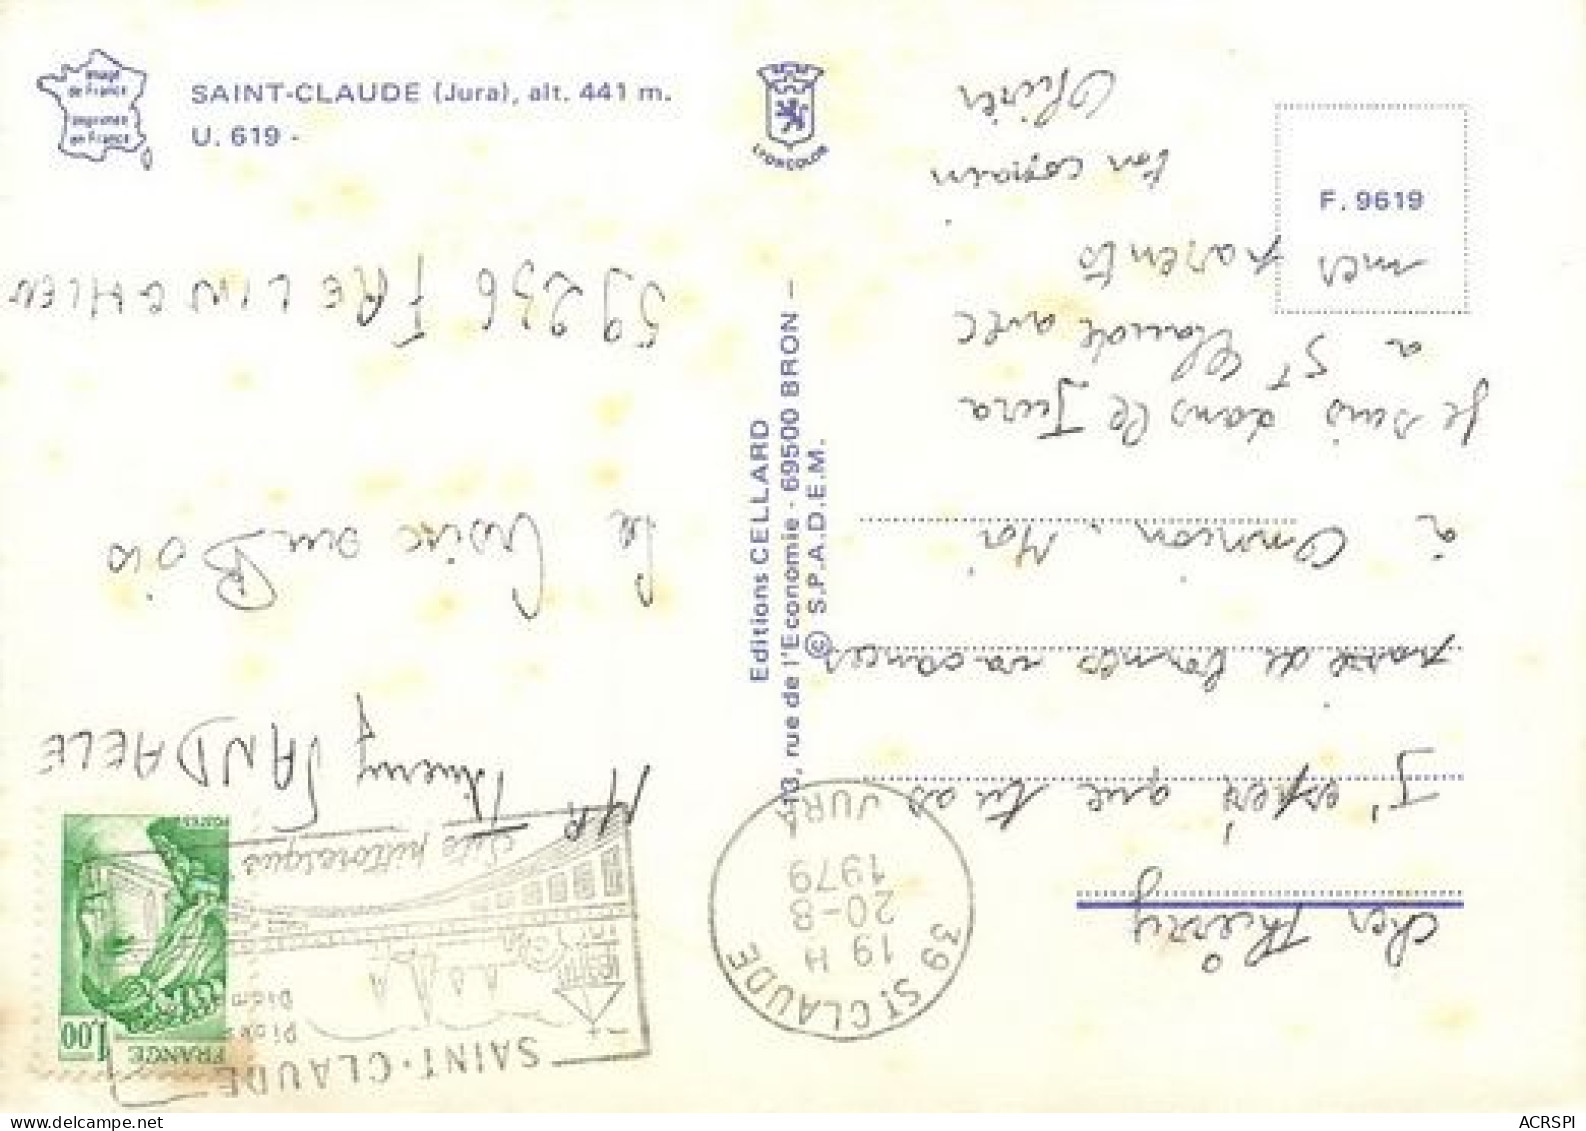 image
de France
imprimée
en France
SAINT-CLAUDE (Jura), alt. 441 m.
U. 619 -
LYONCOLOR
F. 9619
Editions CELLARD
13, rue de l'Economie - 69500 BRON -
© S.P.A.D.E.M.
Cher Thierry
J'espère que tu as
passé de bonnes vacances
à Onnion. Moi
je suis dans le Jura
à St Claude avec
mes parents
ton copain
Olivier
Mr Thierry VANDAELE
La Croix au Bois
59236 FRELINGHIEN
39 ST CLAUDE
19 H
20-8
1979
JURA
SAINT-CLAUDE
Diam
pittoresque
FRANCE
1,00
POSTES
ACRSPI